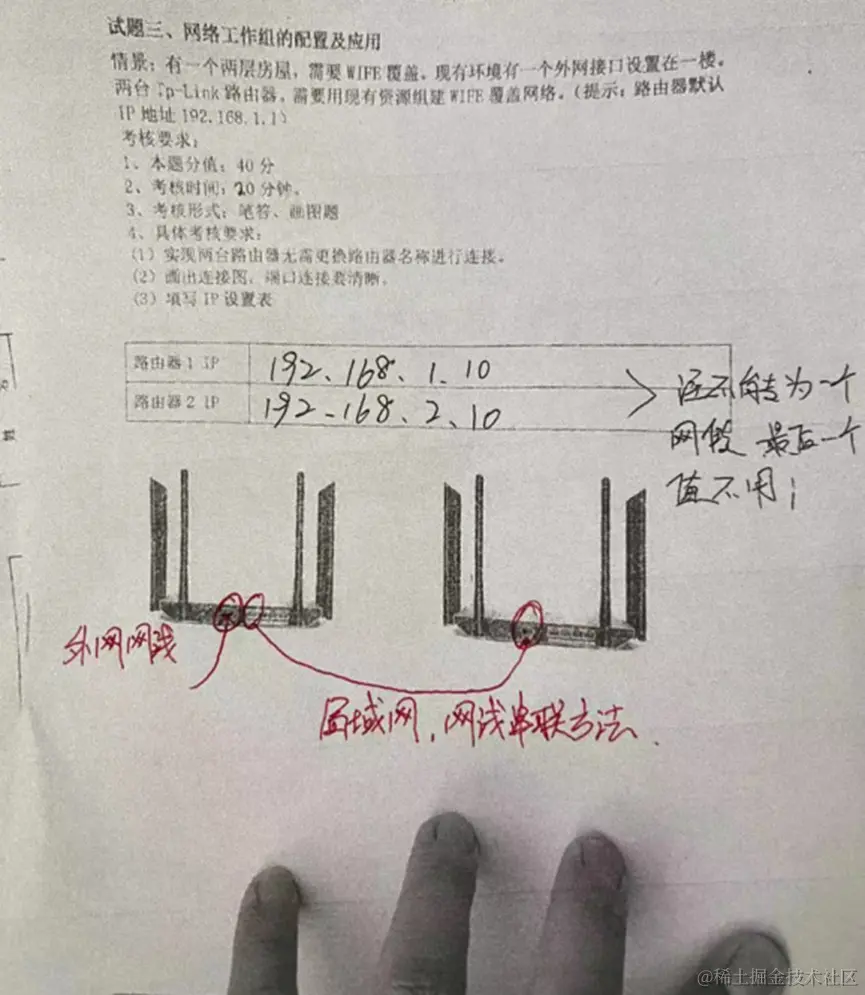 试题三、网络工作组的配置及应用
情景：有一个两层房屋，需要 WIFE 覆盖。现有环境有一个外网接口设置在一楼。
两台 Tp-Link 路由器，需要用现有资源组建 WIFE 覆盖网络。（提示：路由器默认
IP 地址 192.168.1.1）
考核要求：
1、本题分值：40 分
2、考核时间：20 分钟。
3、考核形式：笔答、画图题
4、具体考核要求：
（1）实现两台路由器无需更换路由器名称进行连接。
（2）画出连接图，端口连接要清晰。
（3）填写 IP 设置表
路由器 1 IP 192、168、1、10
路由器 2 IP 192-168、2、10
不能为一个
网段 最后一个
值不用；
外网网线
局域网，网线串联方法.
@稀土掘金技术社区